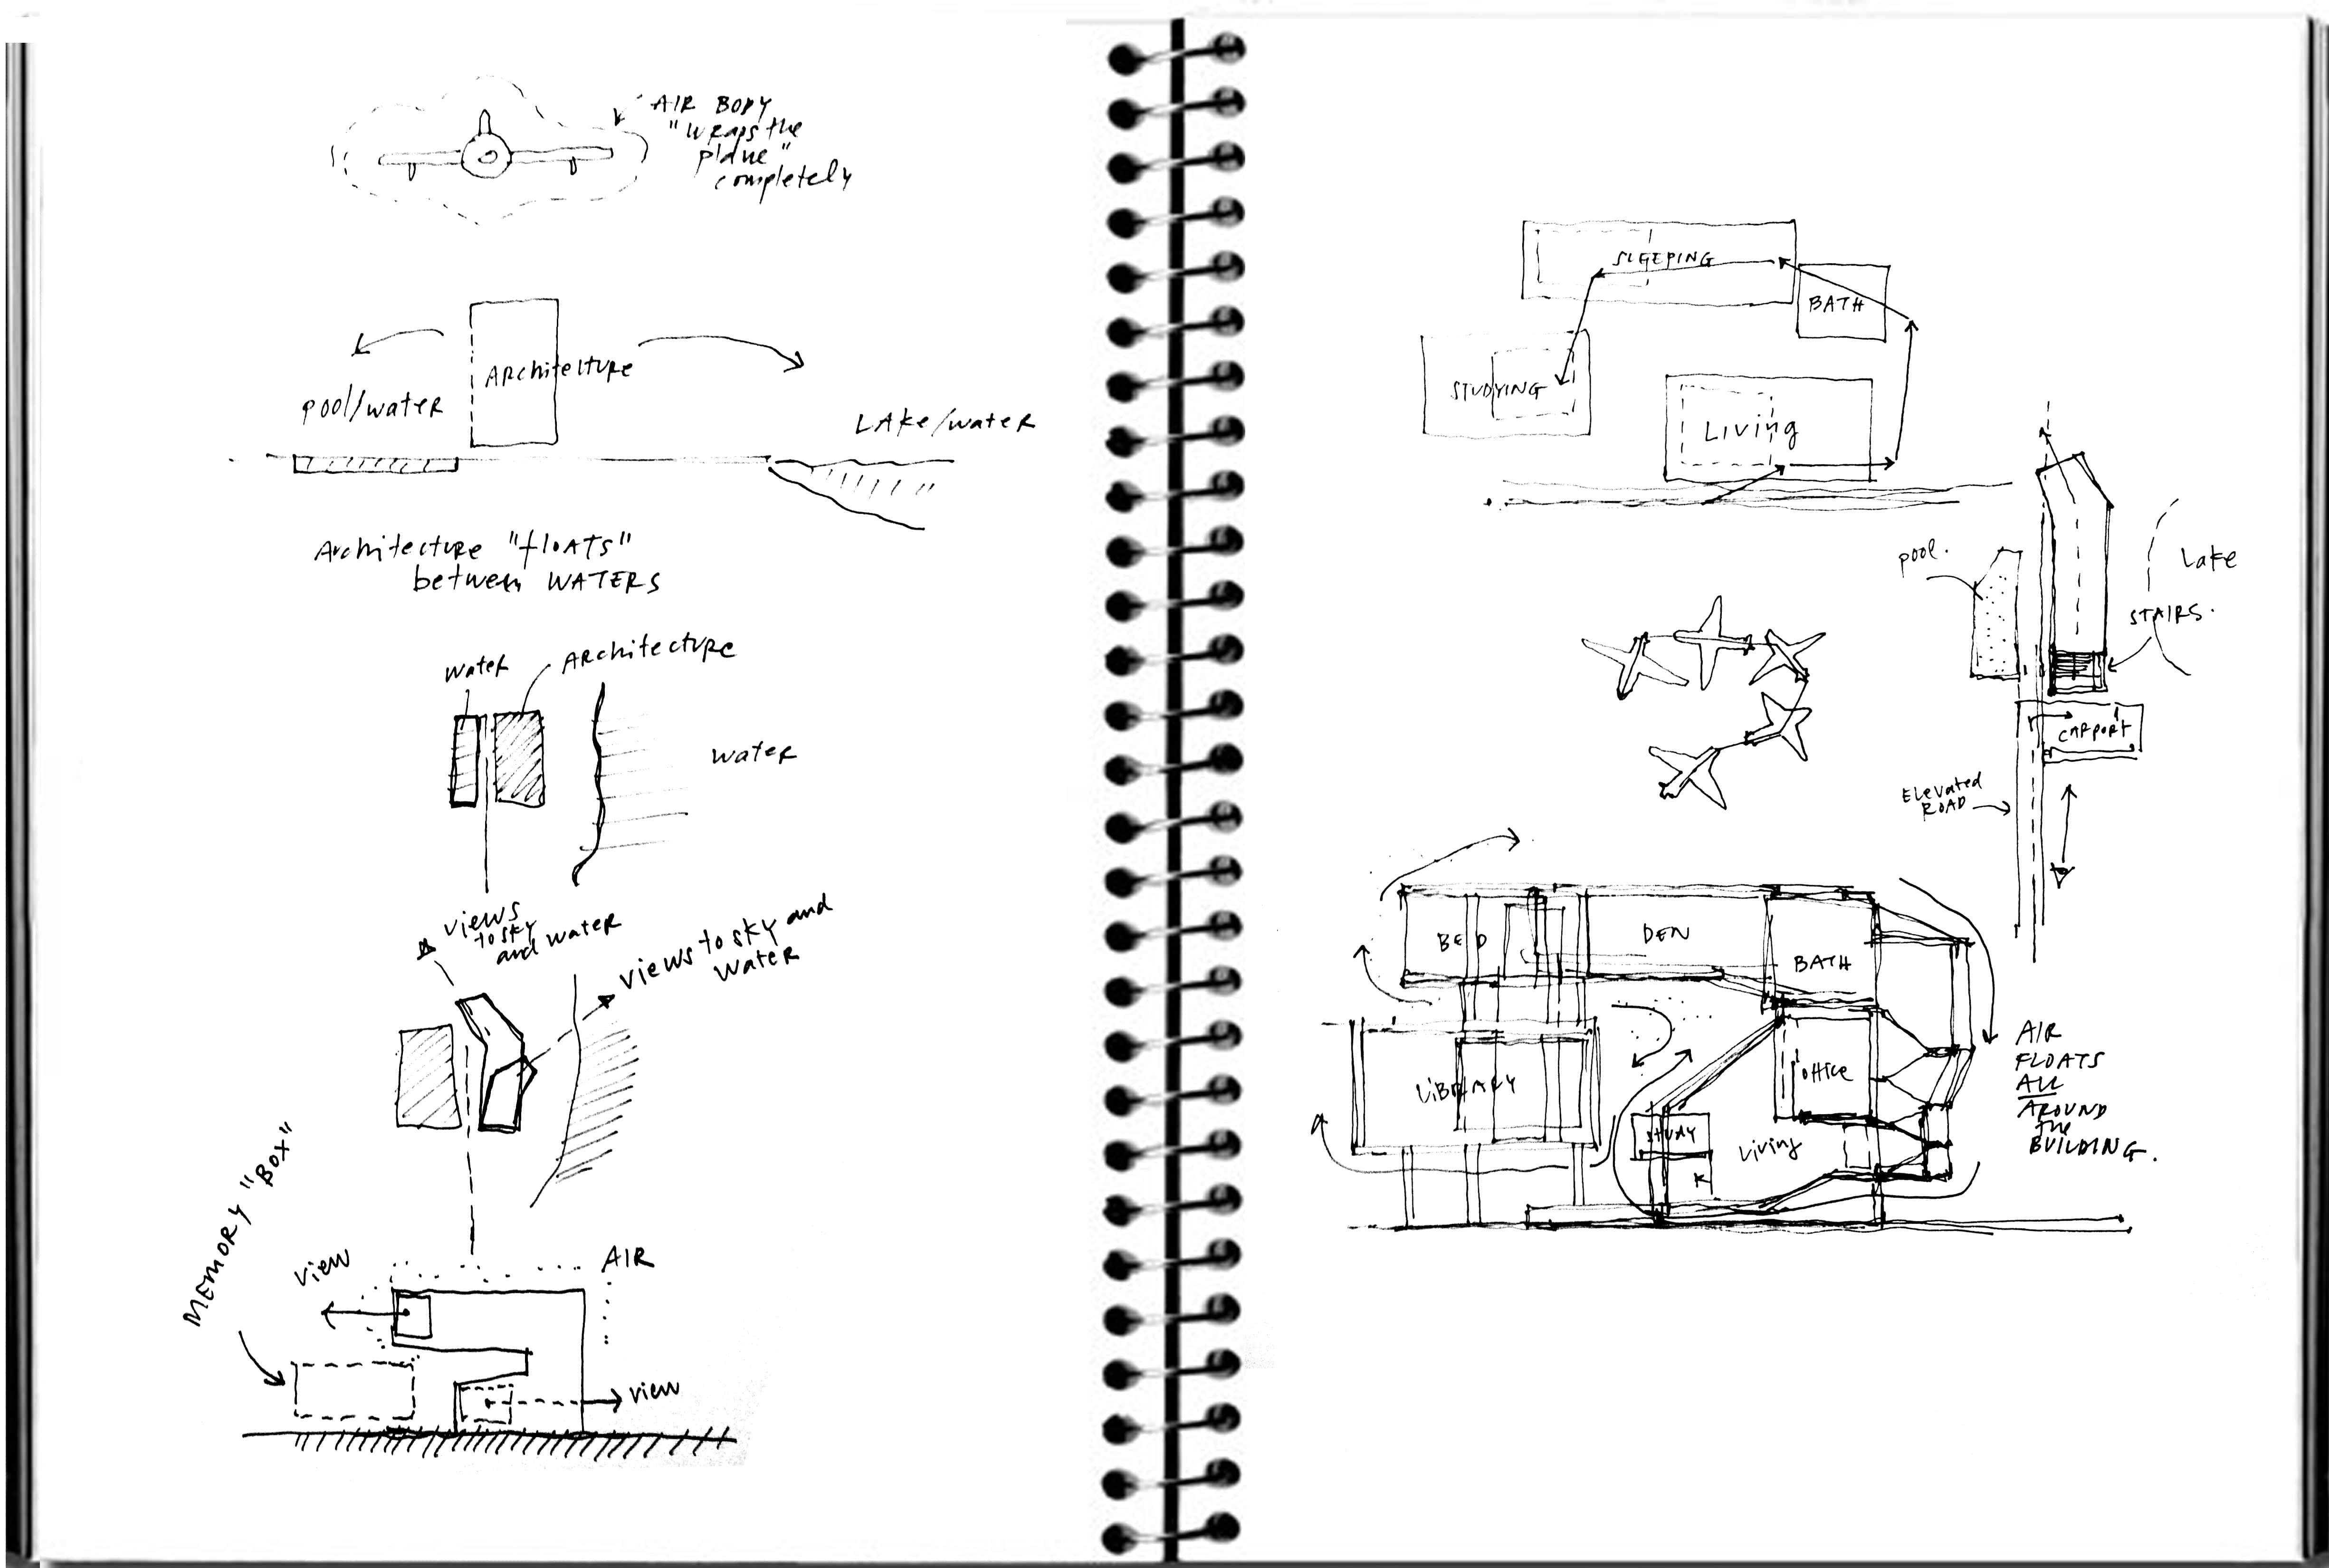 AIR BODY
"WRAPS the
plane"
completely
ARChitecture
pool/water
LAke/water
Architecture "floATS"
between WATERS
water
ARChitecture
water
views
to sky
and water
views to sky and
water
MEMORY "BOX"
view
AIR
view
SLEEPING
BATH
STUDYING
Living
pool.
Lake
STAIRS.
CARPORT
Elevated
ROAD
BED
DEN
BATH
LiBRARY
office
STUDY
Living
K
AIR
FLOATS
ALL
AROUND
the
BUILDING.